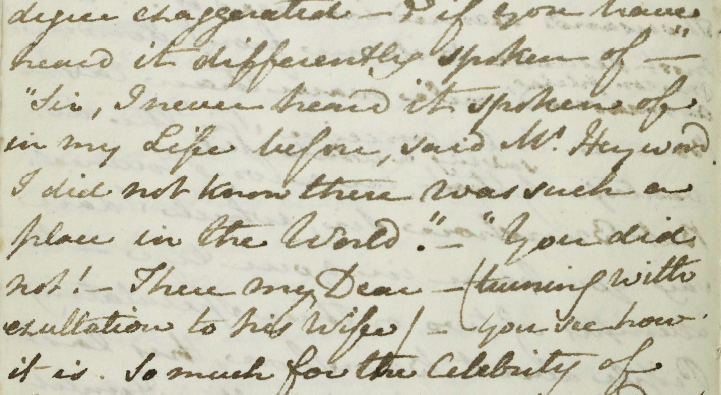 degree exaggerated — & if you have
heard it differently spoken of —"
"Sir, I never heard it spoken of
in my Life before, said Mr. Heywood
I did not know there was such a
place in the World." — "You did
not! — There my Dear — (turning with
exultation to his Wife) — you see how
it is. So much for the Celebrity of